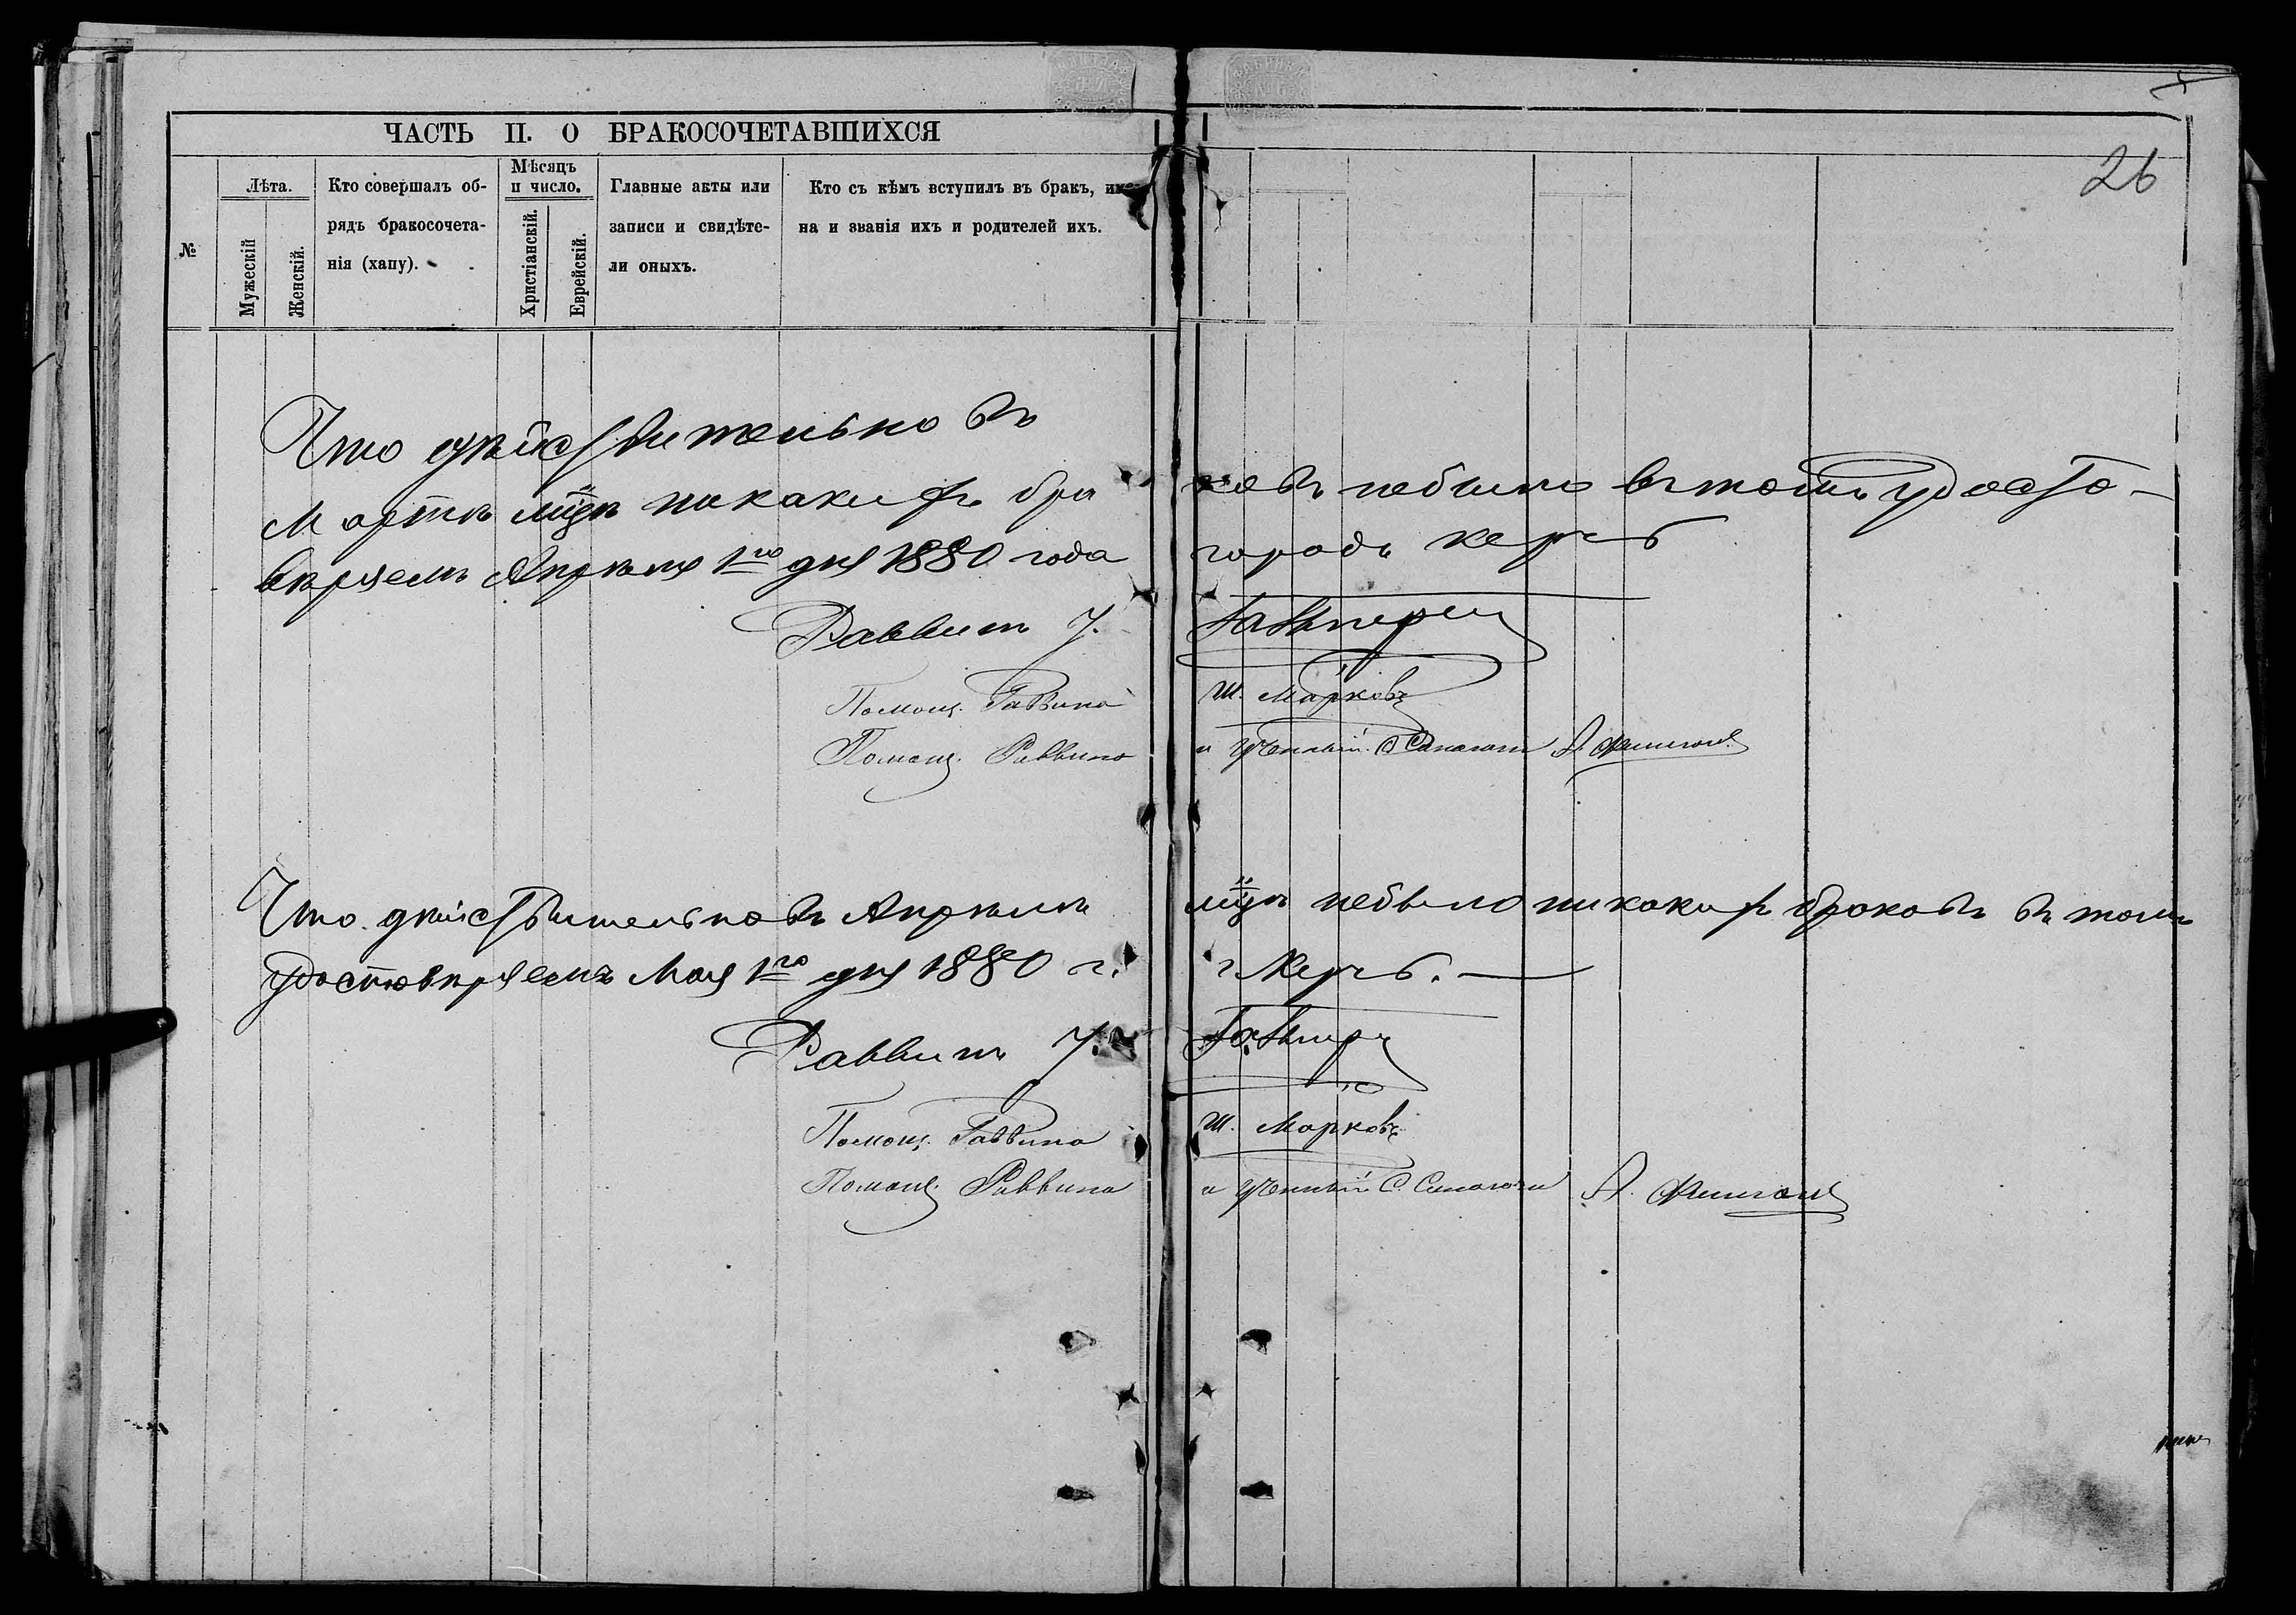 26
ЧАСТЬ II. О БРАКОСОЧЕТАВШИХСЯ
№
Лѣта.
Мужескій
Женскій.
Кто совершалъ об-
рядъ бракосочета-
нія (хапу).
Мѣсяцъ
и число.
Христіанскій.
Еврейскій.
Главные акты или
записи и свидѣте-
ли оныхъ.
Кто съ кѣмъ вступилъ въ бракъ, име
на и званія ихъ и родителей ихъ.
Что дѣйствительно въ
Мартѣ мцѣ никакихъ бра ковъ небыло въ томъ удосто-
вѣряемъ Апрѣля 1го дня 1880 года городъ Керчь
Раввинъ У.
Помощ. Раввина Ш. Марковъ
Помощ. Раввина и Ученый С. Синагоги А.
Что дѣйствительно въ Апрѣлѣ мцѣ небыло никакихъ браковъ въ томъ
удостовѣряемъ Мая 1го дня 1880 г. г Керчь.
Раввинъ У.
Помощ. Раввина Ш. Марковъ
Помощ. Раввина и Ученый С. Синагоги А.